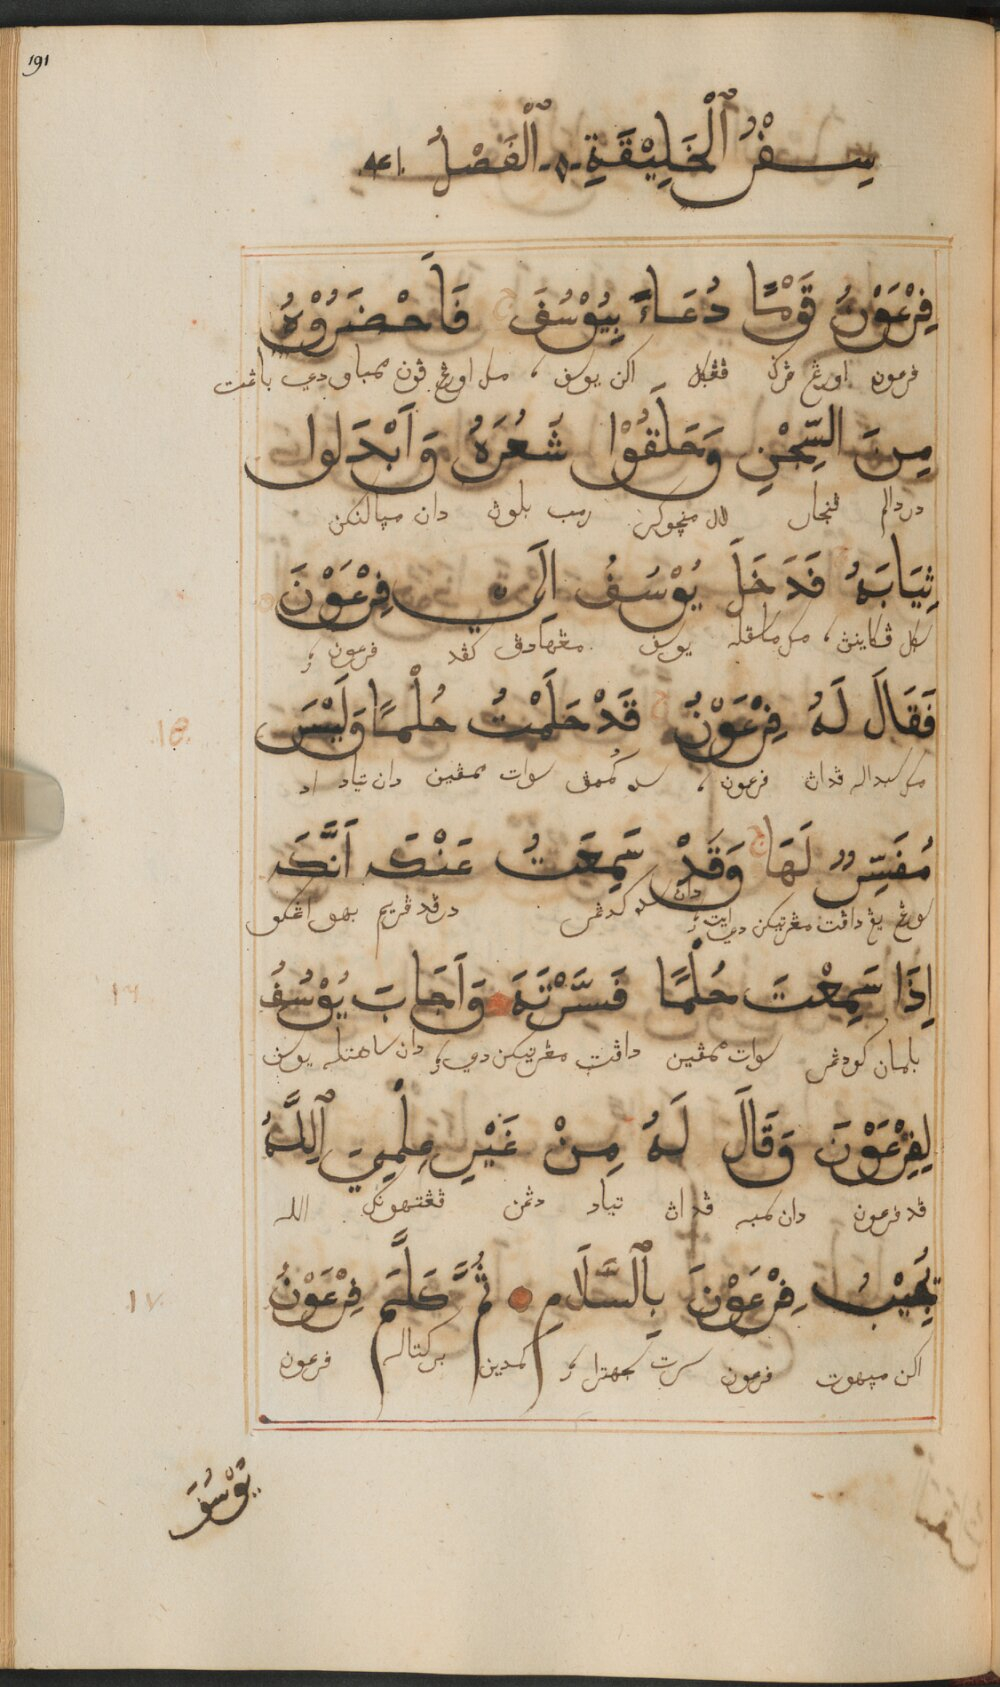 191
سِفْرُ ٱلْخَلِيْقَةِ -٥- ٱلْفَصْلُ .٤١.
فِرْعَوْنُ قَوْمًا دُعَاءً بِيُوْسُفَ فَاَحْضَرُوْهُ
فرعون اورڠ مرک ڤڠݢل اکن يوسف ، مک اورڠ ڤون ممباو دي باڠت
مِنَ السِّجْنِ وَحَلَقُوْا شَعُرَهُ وَاَبْدَلوا
در دالم ڤنجارا لال منچوکر رمب بلون دان مپالنکن
ثِيَابَهُ فَدَخَلَ يُوْسُفُ اِلَي فِرْعَوْنَ
سکل ڤکاينڽ ، مک ماسقله يوسف مڠهادڤ کڤد فرعون
فَقَالَ لَهُ فِرْعَوْنُ قَدْ حَلَمْتُ حُلْمًا وَلَيْسَ
١٥
مک سبداله ڤداڽ فرعون ، سده کممڤي سوات ممڤين دان تياد اد
مُفَسِّرٌ لَهَا وَقَدْ سَمِعَتُ عَنْكَ اَنَّكَ
سورڠ يڠ داڤت مڠرتيکن دي ايت دان سده کدڠر درڤد ڤريم بهو اڠکو
اِذَا سَمِعْتَ حُلْمًا فَسَّرْتَهَ وَاَجَابَ يُوْسُفُ
١٦
بلمان کودڠر سوات ممڤين داڤت مڠرتيکن دي ، دان ساهتله يوسف
لِفِرْعَوْنَ وَقَالَ لَهُ مِنْ غَيْرِ عِلْمِيَ ٱللّٰهُ
ڤد فرعون دان کمبه ڤداڽ تياد دڠن ڤڠتهونکو الله
يُجِيْبُ فِرْعَوْنَ بِٱلسَّلَامِ ثُمَّ كَلَّمَ فِرْعَوْنُ
١٧
اکن مپهوت فرعون سرت سجهترا ، کمدين برکتاله فرعون
يُوْسُفَ